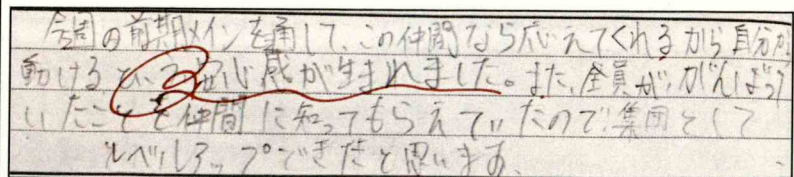 今週の前期メインを通して、この仲間なら応えてくれるから自分が
動けるという安心感が生まれました。また、全員が、がんばって
いたことを仲間に知ってもらえていたので、集団として
レベルアップできたと思います。